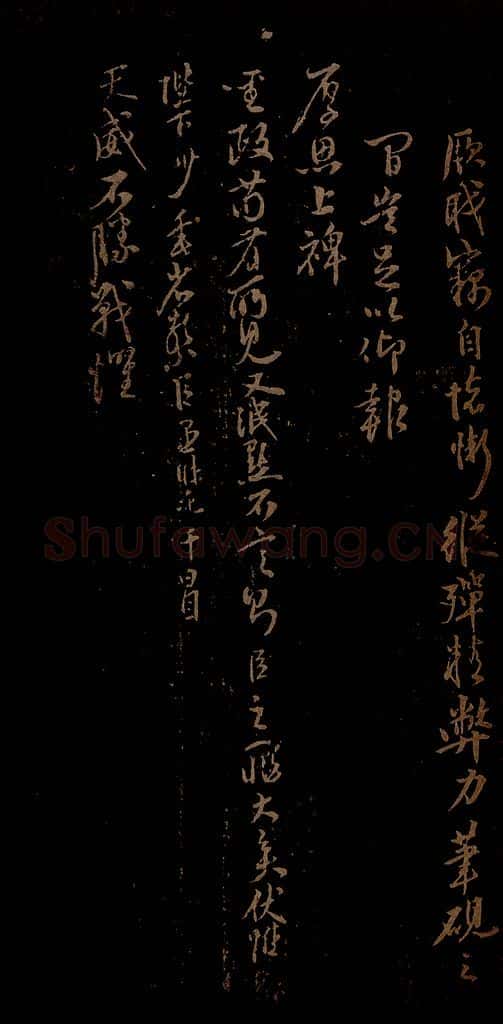 厥職竊自悚慚縱殫精弊力筆硯之
間豈足以仰報
厚恩上裨
聖政苟有所見又泯默不言則臣之罪大矣伏惟
陛下少垂省察臣愚昧死干冒
天威不勝戰懼
Shufawang.CN